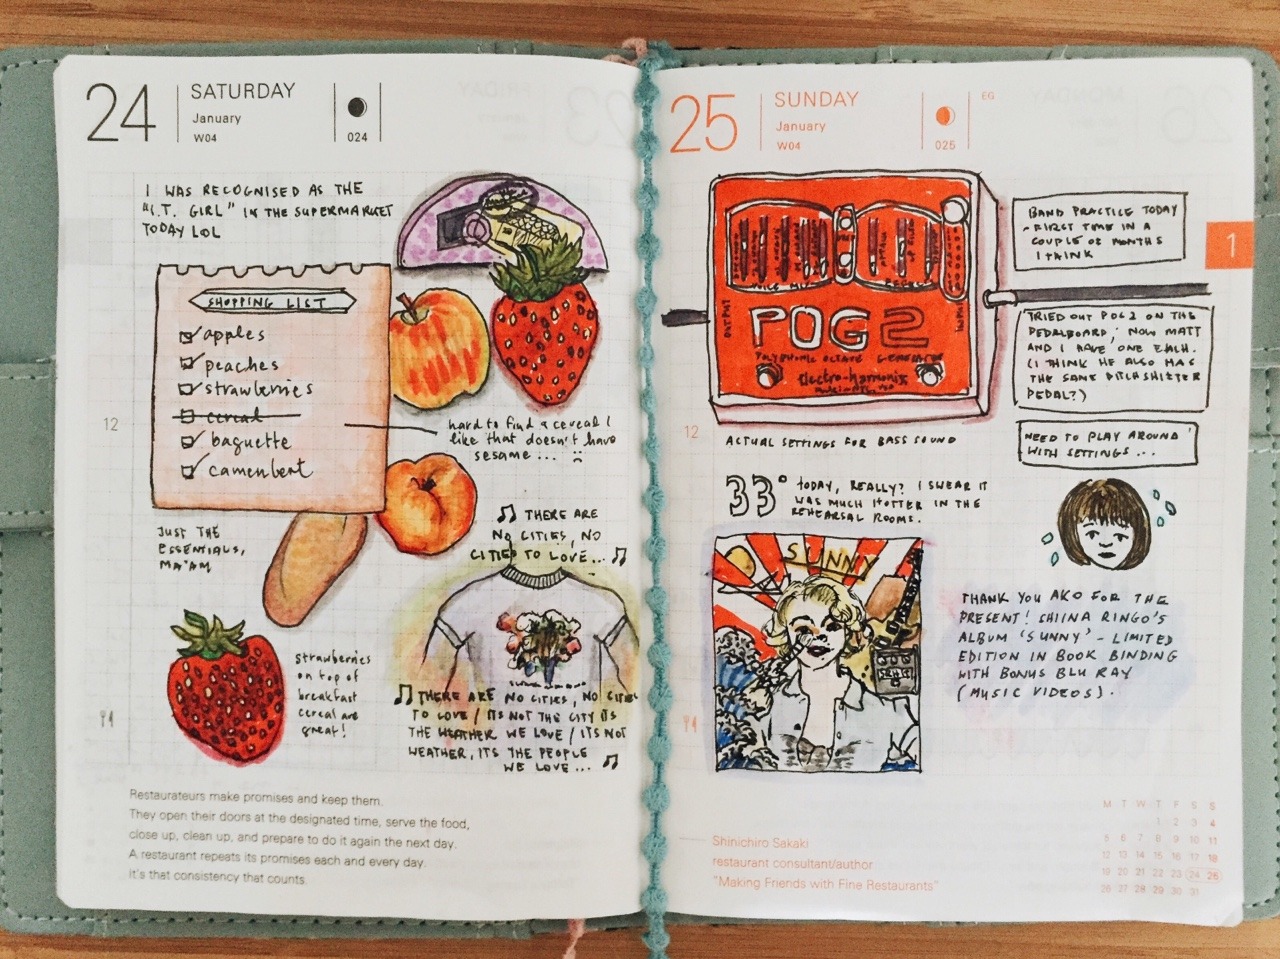 24
SATURDAY
January
W04
024
I WAS RECOGNISED AS THE
"I.T. GIRL" IN THE SUPERMARKET
TODAY LOL
SHOPPING LIST
apples
peaches
strawberries
cereal
baguette
camembert
hard to find a cereal I
like that doesn't have
sesame...
12
JUST THE
ESSENTIALS,
MA'AM
♫ THERE ARE
NO CITIES, NO
CITIES TO LOVE... ♫
strawberries
on top of
breakfast
cereal are
great!
♫ THERE ARE NO CITIES, NO CITIES
TO LOVE / ITS NOT THE CITY ITS
THE WEATHER WE LOVE / ITS NOT
WEATHER, ITS THE PEOPLE
WE LOVE... ♫
Restaurateurs make promises and keep them.
They open their doors at the designated time, serve the food,
close up, clean up, and prepare to do it again the next day.
A restaurant repeats its promises each and every day.
It's that consistency that counts.
25
SUNDAY
January
W04
025
EG
1
OUTPUT
INPUT
POG2
POLYPHONIC OCTAVE GENERATOR
electro-harmonix
BAND PRACTICE TODAY
- FIRST TIME IN A
COUPLE OF MONTHS
I THINK
TRIED OUT POG2 ON THE
PEDALBOARD, NOW MATT
AND I HAVE ONE EACH.
(I THINK HE ALSO HAS
THE SAME PITCHSHIFTER
PEDAL?)
NEED TO PLAY AROUND
WITH SETTINGS...
12
ACTUAL SETTINGS FOR BASS SOUND
33° TODAY, REALLY? I SWEAR IT
WAS MUCH HOTTER IN THE
REHEARSAL ROOMS.
SUNNY
THANK YOU AKO FOR THE
PRESENT! SHIINA RINGO'S
ALBUM 'SUNNY' - LIMITED
EDITION IN BOOK BINDING
WITH BONUS BLU RAY
(MUSIC VIDEOS).
Shinichiro Sakaki
restaurant consultant/author
"Making Friends with Fine Restaurants"
M T W T F S S
1 2 3 4
5 6 7 8 9 10 11
12 13 14 15 16 17 18
19 20 21 22 23 24 25
26 27 28 29 30 31